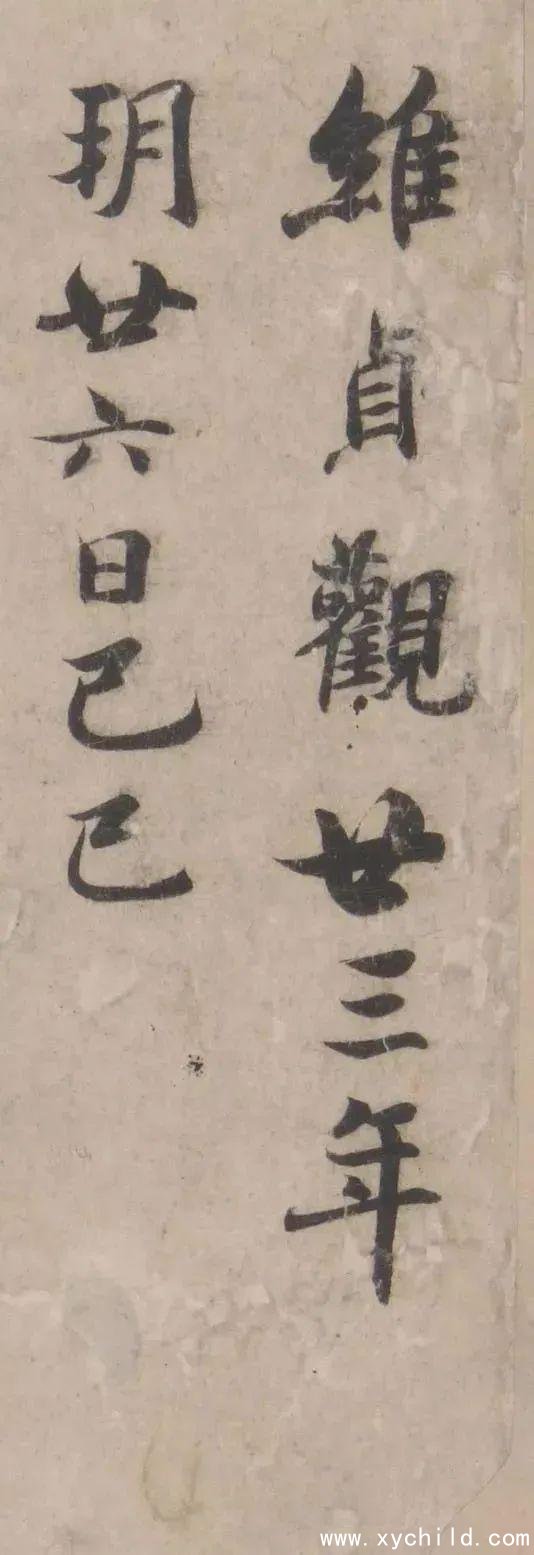 維貞觀廿三年
玥廿六日己巳
www.xychild.com